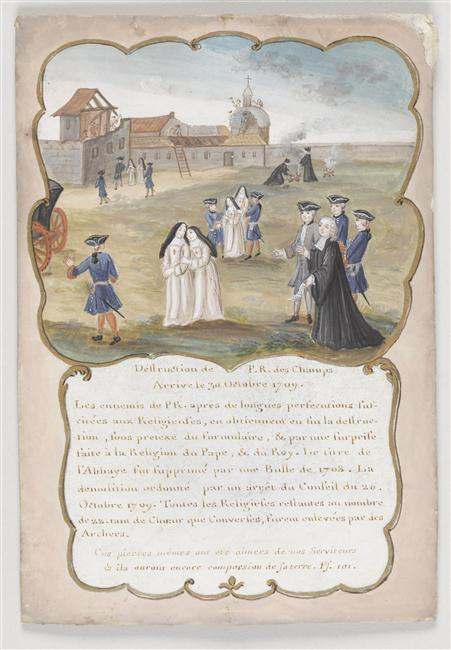 Déstruction de P. R. des Champs.
Arrivé le 30 Octobre 1709.
Les ennemis de P.R. aprés de longues persecutions sus-
citées aux Religieuses, en obtiennent en fin la destruc-
tion, sous pretexte du formulaire, & par une surprise
faite à la Religion du Pape, & du Roy. Le titre de
l'Abbaye fut supprimé par une Bulle de 1708. La
demolition ordonné par un arrêt du Conseil du 26
Octobre 1709. Toutes les Religieuses restantes au nombre
de 22. tant de Chœur que Converses, furent enlevées par des
Archers.
Ces pierres mêmes ont eté aimées de vos Serviteurs
& ils auront encore compassion de sa terre. Ps. 101.